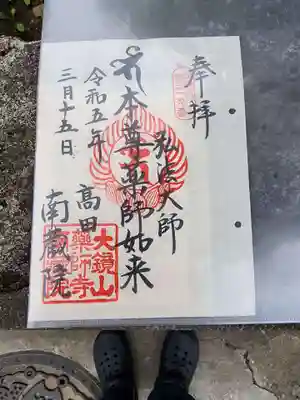 奉拝
弘法大師
本尊薬師如来
令和五年
三月十五日
高田
南蔵院
大鏡山
薬師寺
南蔵院